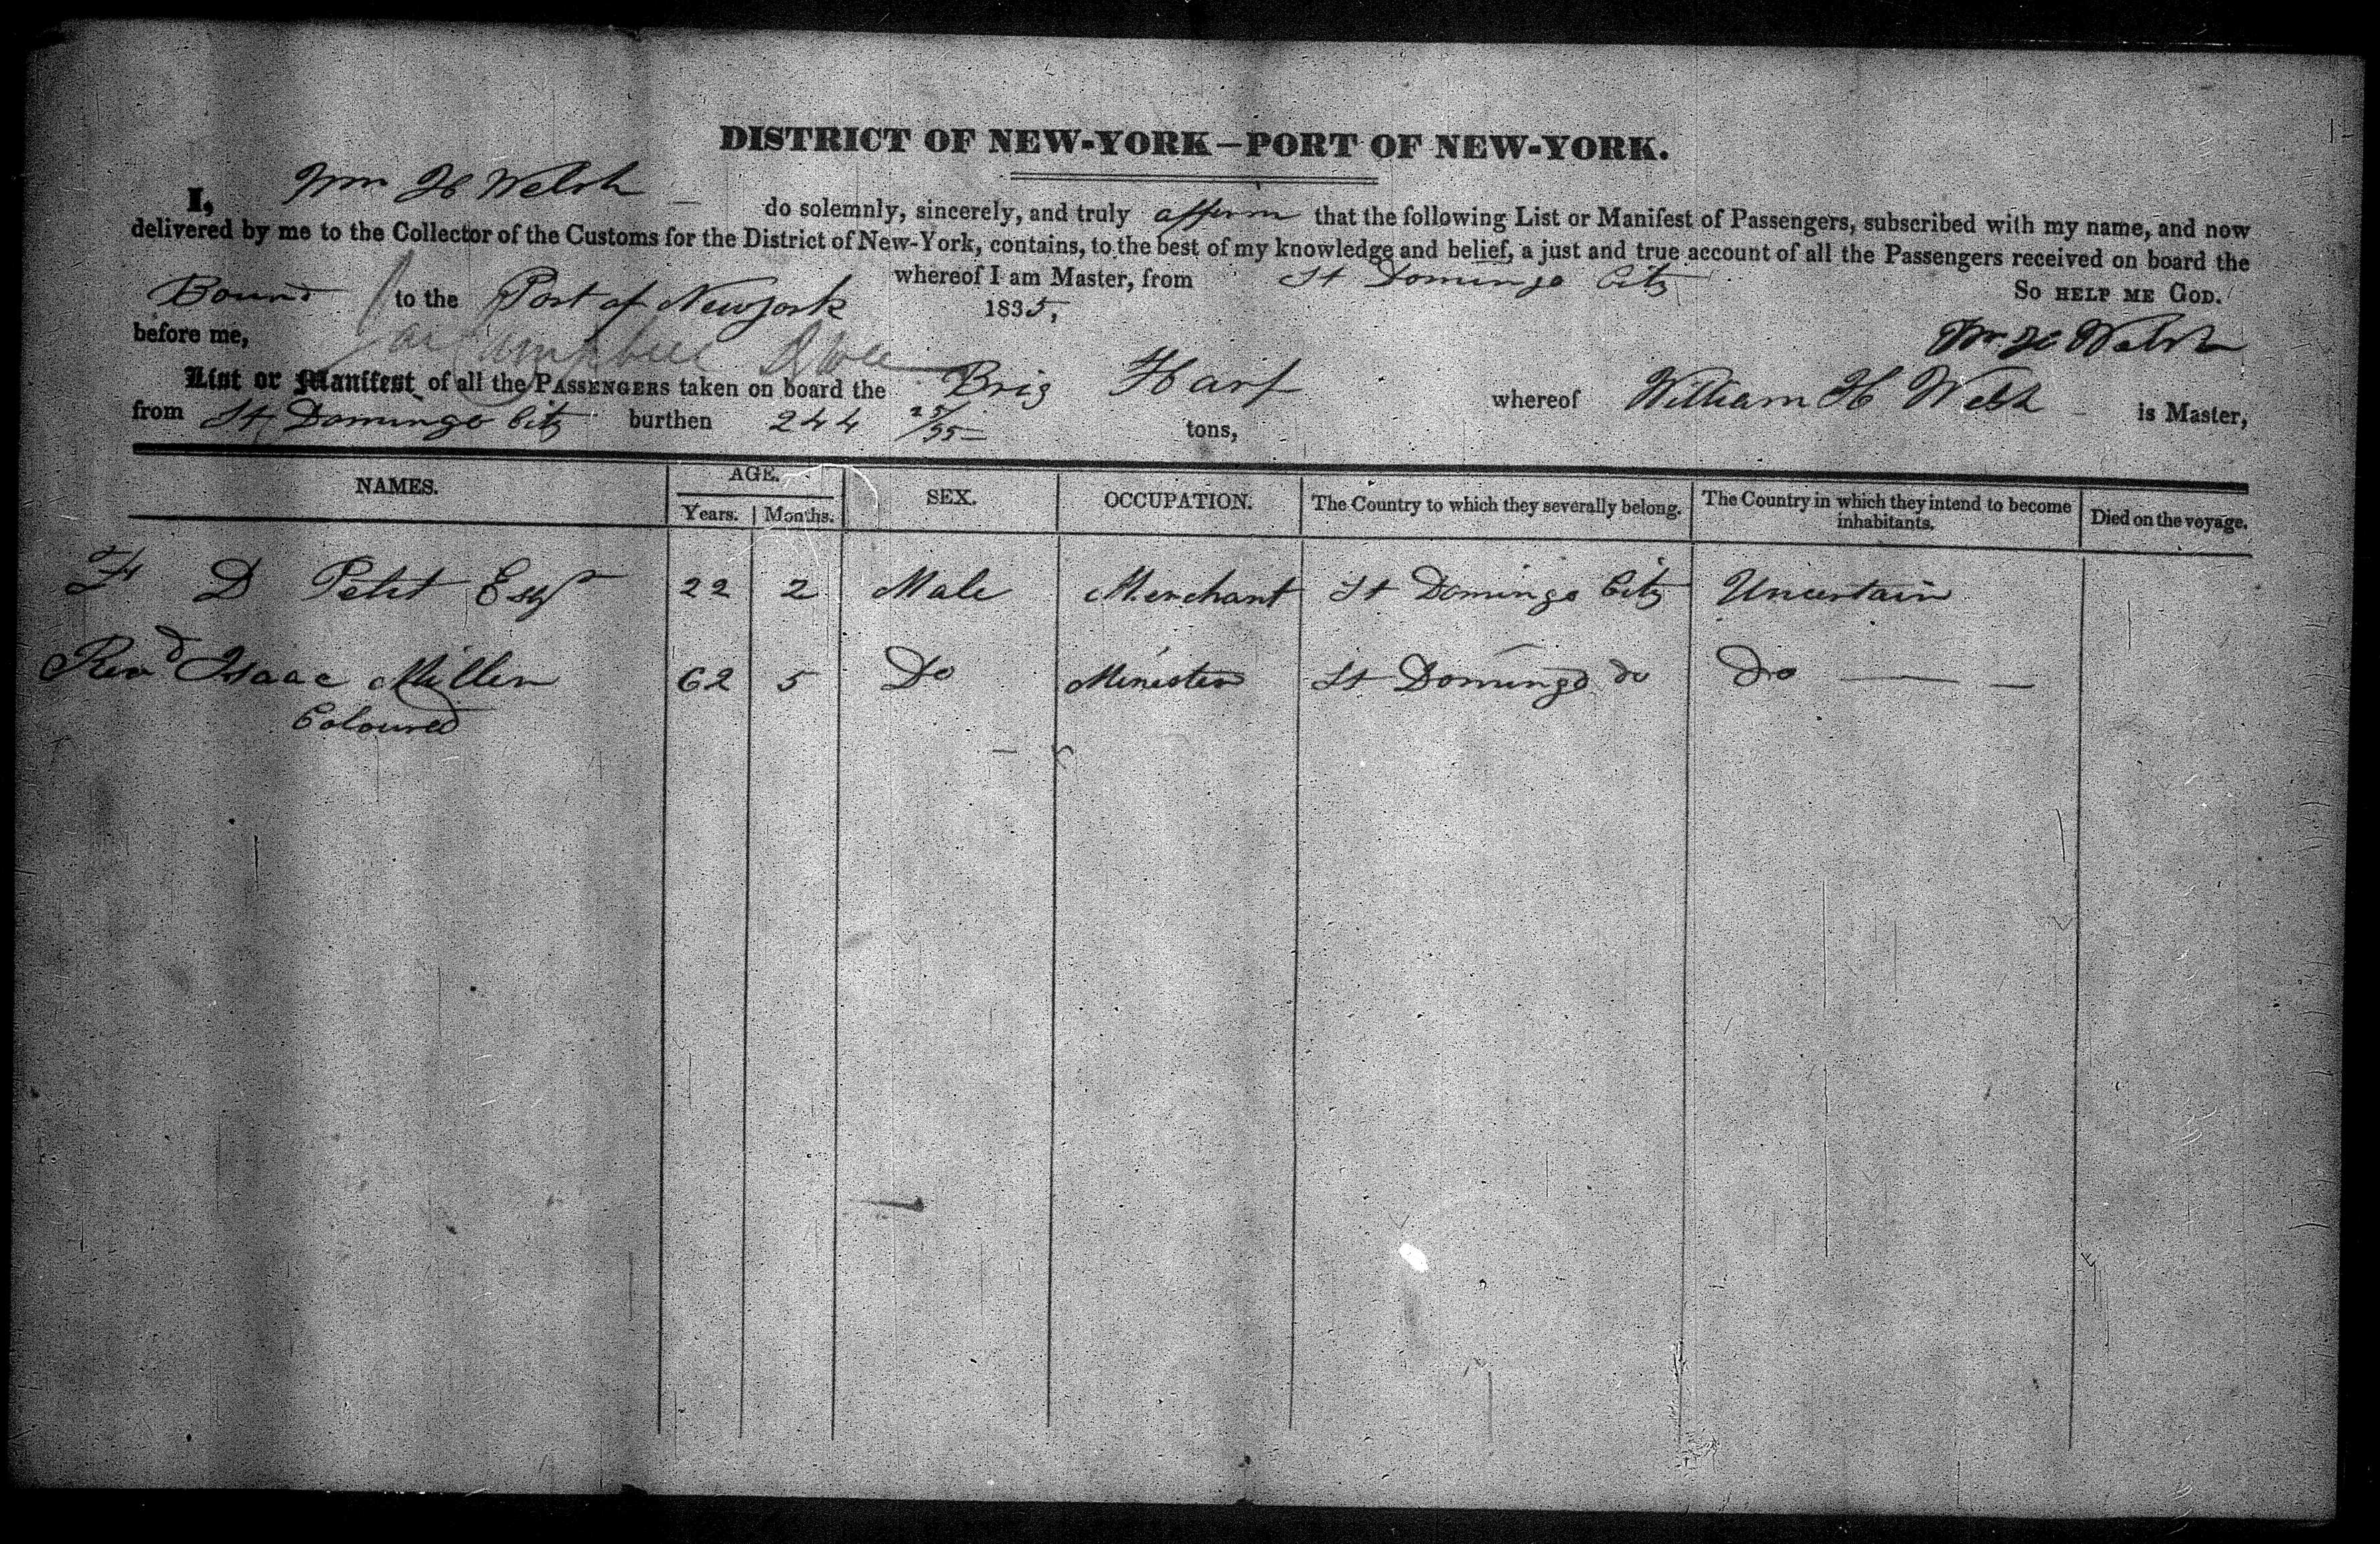 DISTRICT OF NEW-YORK—PORT OF NEW-YORK.
I, Wm H Welsh — do solemnly, sincerely, and truly affirm that the following List or Manifest of Passengers, subscribed with my name, and now
delivered by me to the Collector of the Customs for the District of New-York, contains, to the best of my knowledge and belief, a just and true account of all the Passengers received on board the
whereof I am Master, from St Domingo City
Bound to the Port of Newyork 1835, So HELP ME GOD.
before me, Campbell Wm H Welsh
List or Manifest of all the PASSENGERS taken on board the Brig Hart whereof William H Welsh is Master,
from St Domingo City burthen 244 25/95 tons,
NAMES. AGE. SEX. OCCUPATION. The Country to which they severally belong. The Country in which they intend to become inhabitants. Died on the voyage.
Years. Months.
F D Petit Esqr 22 2 Male Merchant St Domingo City Uncertain
Revd Isaac Miller 62 5 Do Minister St Domingo do Do — —
Coloured